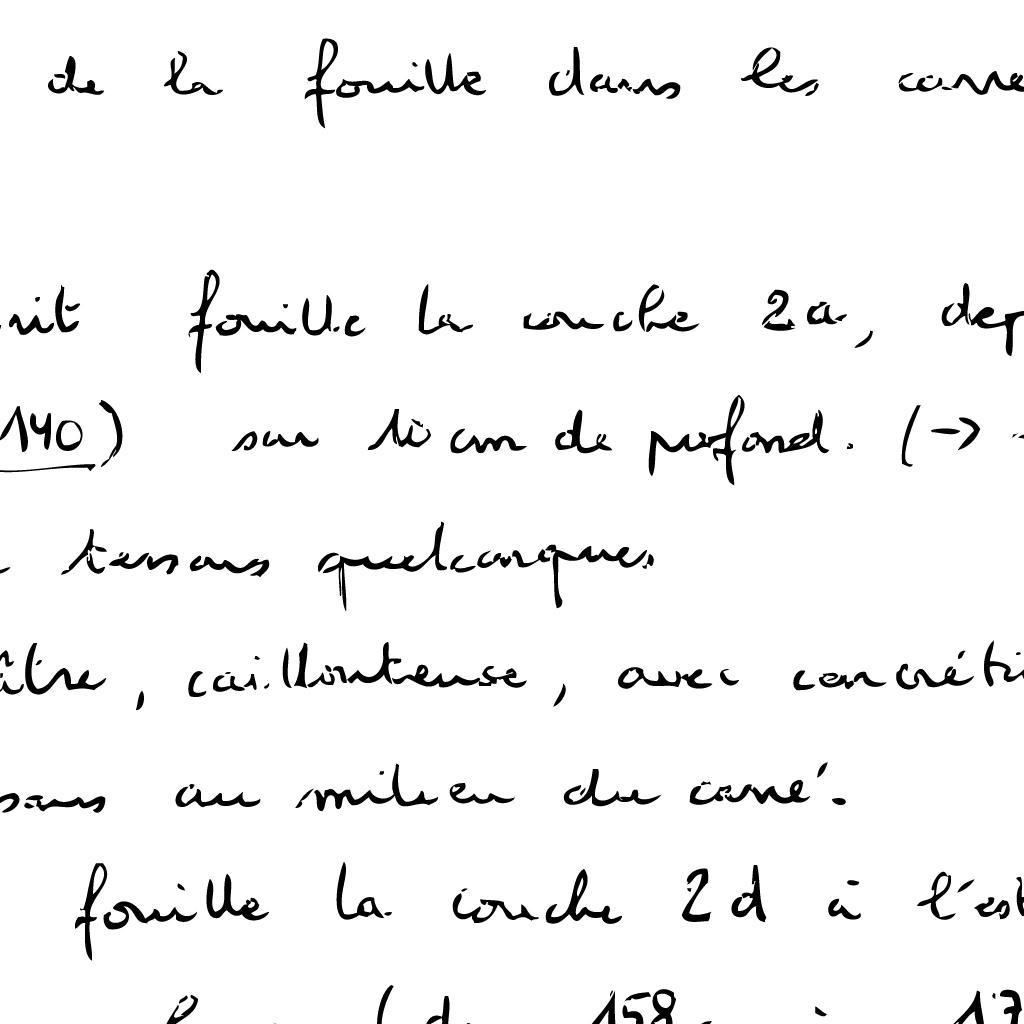 de la fouille dans les carré
fouille la couche 2a, dep
140) sur 10 cm de profond. (→
tessons quelconques.
âtre, caillouteuse, avec concréti
sous au milieu du carré.
fouille la couche 2d à l'est
(de 158 à 17